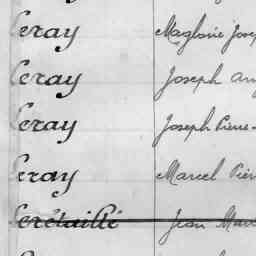 eray Magloire Josep
eray Joseph Aug
eray Joseph Pierre-
eray Marcel Pier
erétaillé Jean Mari